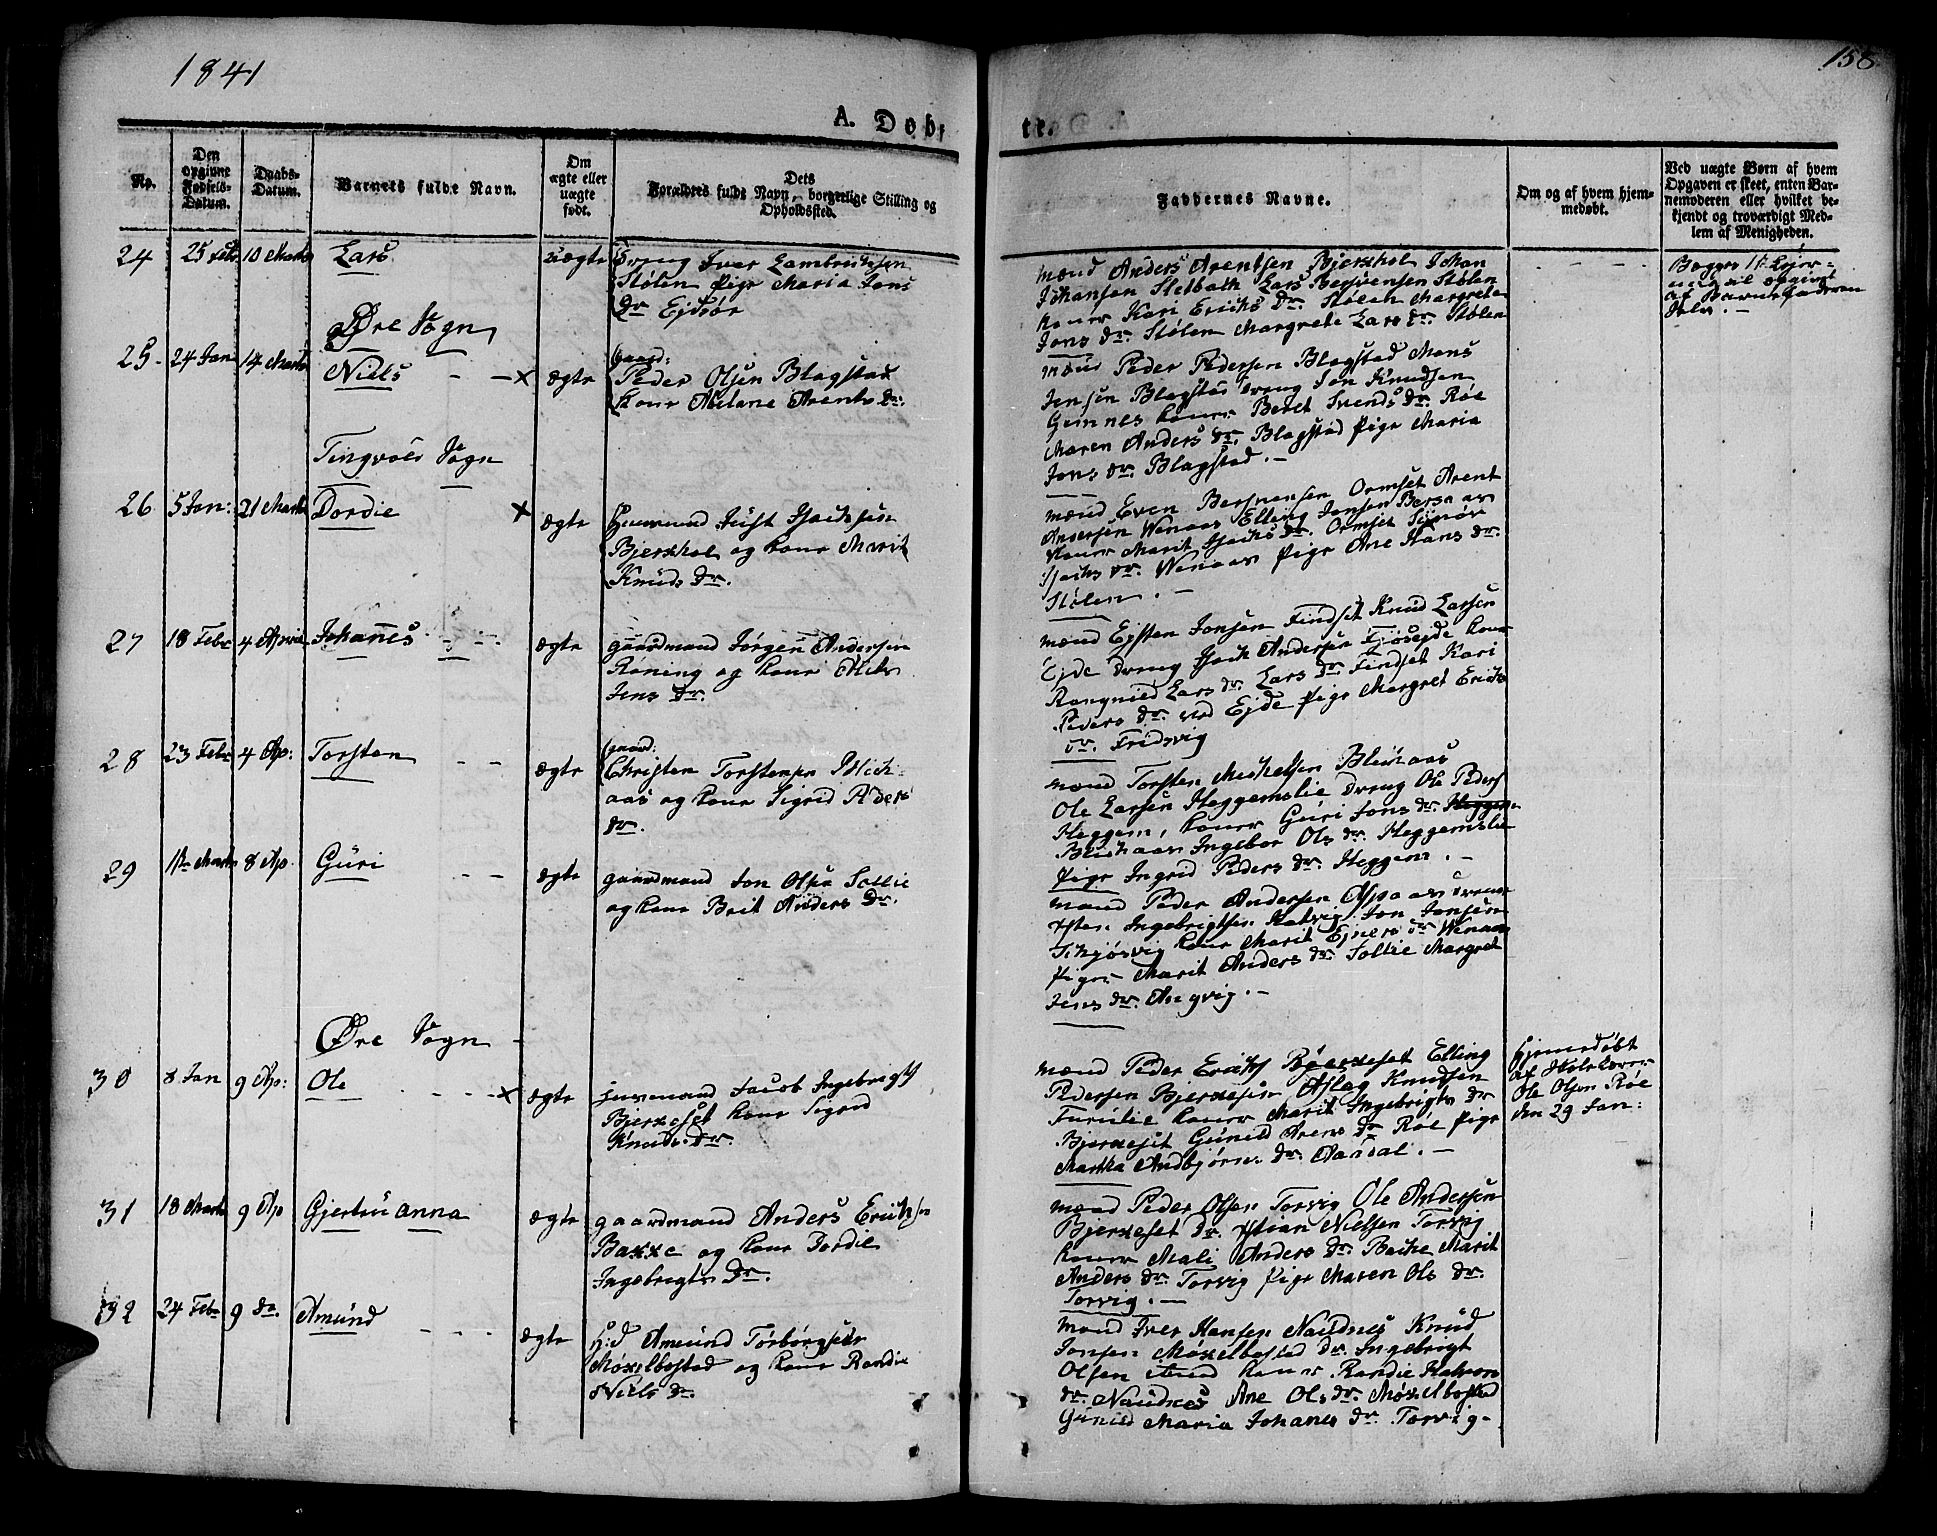 1841
158
A. Døbte.
No.
Den opgivne Fødsels-Datum.
Daabs-Datum.
Barnets fulde Navn.
Om ægte eller uægte født.
Dets Forældres fulde Navn, borgerlige Stilling og Opholdssted.
Faddernes Navne.
Om og af hvem hjemmedøbt.
Ved uægte Børn af hvem Opgaven er skeet, enten Barnemoderen eller hvilket bekjendt og troværdigt Medlem af Menigheden.
24 25 Febr 10 Marts Lars uægte
Dreng Iver Lambrichtsen
Stølen Pige Maria Jons
Dr Ejdsør
Mænd Anders Arentsen Bjerkhol Johan
Johansen Lars
Koner Kari Erichs Dr Stølen Margrete
Jons Dr. Stølen Margrete Lars Dr. Stølen
Begges 1ste Lejer-
maal opgivet
af Barnefaderen
selv. -
Øre Sogn
25. 24 Jan 14 Marts Niels - - x ægte
Gaard:
Peder Olsen Blagstad
Kone Abelane Arents Dr.
Mænd Peder Pedersen Blagstad Mons
Jensen Blagstad Dreng Jon Knudsen
Gimnes Koner Beret Svends Dr. Røe
Maren Anders Dr. Blagstad Pige Maria
Jons Dr. Blagstad. -
Tingvold Sogn
26 5 Jan: 21 Marts Dordie x ægte
Huusmand Just Isachsen
Bjerkhol og Kone Marit
Knuds Dr.
Mænd Even Ormset Arent
Andersen Wenaas Elling Jonsen
Koner Marit Isachs Dr. Ormset
Isachs Dr. Wenaas Pige Ane Hans Dr.
Stølen. -
27 18 Febr 4 April Johanes - - - ægte
Gaardmand Jørgen Andersen
Koning og Kone
Jens Dr.
Mænd Ejsten Jonsen Findset Knud Larsen
Ejde Dreng Isach Andersen Kone
Rangnild Lars Dr. Lars Dr Findset Kari
Peders Dr. ved Ejde Pige Margret Erichs
Dr. Fridsvig
28 23 Febr 4 Ap: Torsten - - ægte
Gaard:
Christen Torstensen Blich-
aas og Kone Sigrid Peders
Dr.
Mænd Torsten Michelsen Blichaas
Ole Larsen Heggemslie Dreng Ole Peders
Heggem, Koner Guri Jons Dr. Heggem
Blichaas Ingebor Ols Dr. Heggemslie
Pige Ingrid Peders Dr. Heggem. -
29 Marts 8 Ap. Guri - - ægte
Gaardmand Jon Olsen Sollie
og Kone Brit Anders Dr.
Mænd Peder Andersen Aspaas Dreng
Ingebrigtsen Jon Jonsen
Koner Marit Ejners Dr Wenaas
Pige Marit Anders Dr. Sollie Margret
Jens Dr. Angvig. -
Øre Sogn -
30 8 Jan 9 Ap: Ole - - - x ægte
Huusmand Jacob Ingebrigts
Bjerkeset Kone Sigrid
Knuds Dr
Mænd Peder Erichs Bjerkeset Elling
Pedersen Bjerkeset Aslag Knudsen
Furulie Koner Marit Ingebrigts Dr
Bjerkeset Gunild Arens Dr Røe Pige
Martha Andbjørns Dr. Aandal. -
Hjemedøbt
af Skolelærer
Ole Olsen Røe
den 29 Jan:
31 18 Marts 9 Ap Gjertru anna ægte
Gaardmand Anders Erichsen
Bakke og Kone Dordie
Ingebrigts Dr.
Mænd Peder Olsen Torvig Ole Andersen
Bjerkeset Dr. Stian Nielsen Torvig
Koner Mali Anders Dr. Bache Marit
Anders Dr. Torvig Pige Maren Ols Dr.
Torvig. -
32 24 Febr 9 do. Amund - - - ægte
H:d Amund Torborgsen
Møkelbostad og Kone Randie
Niels Dr
Mænd Iver Hansen Naudnes Knud
Jonsen Møkelbostad Dr. Ingebrigt
Olsen Koner Randie Halvors
Dr. Naudnes Ane Ols Dr. Møkelbostad
Gunild Maria Johanes Dr. Torvig -